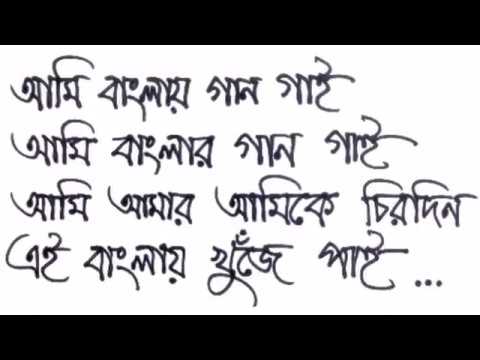 আমি বাংলায় গান গাই
আমি বাংলার গান গাই
আমি আমার আমিকে চিরদিন
এই বাংলায় খুঁজে পাই...